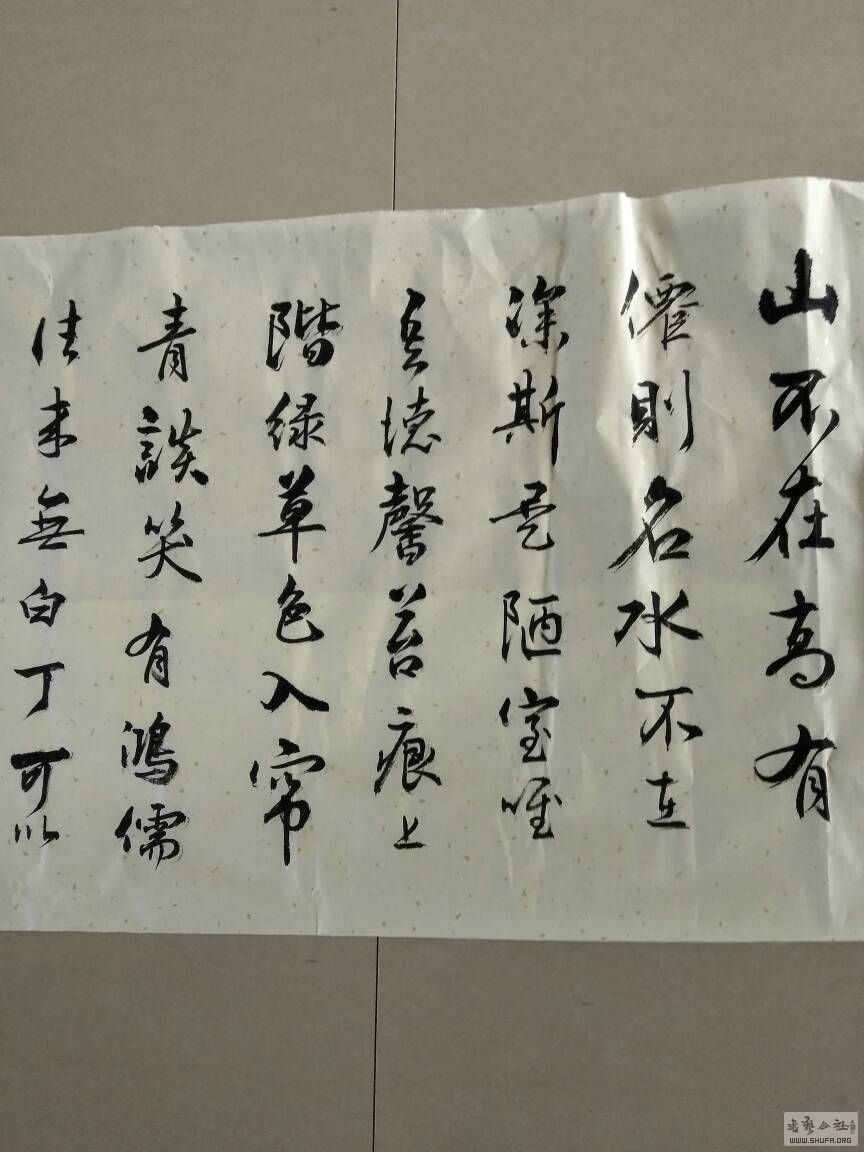 山不在高有
僊則名水不在
深斯是陋室唯
吾德馨苔痕上
階绿草色入帘
青談笑有鴻儒
往来無白丁可以
WWW.SHUFA.ORG